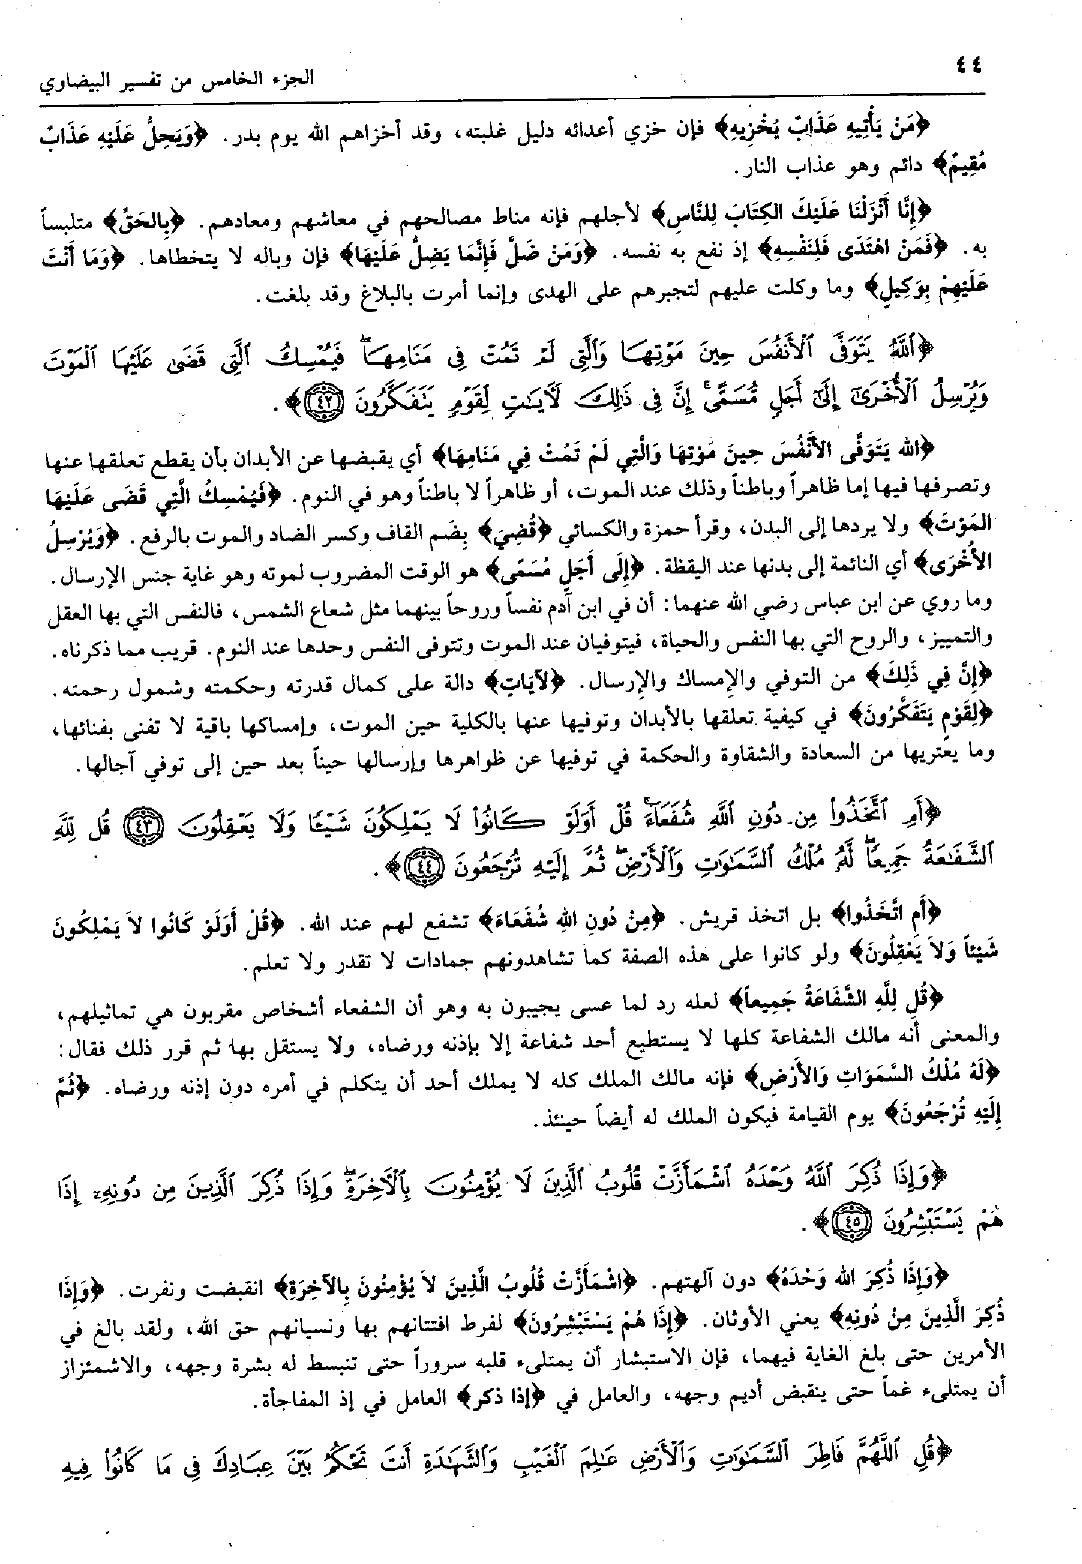 ٤٤
الجزء الخامس من تفسير البيضاوي
﴿مَنْ يَأْتِيهِ عَذَابٌ يُخْزِيهِ﴾ فإن خزي أعدائه دليل غلبته، وقد أخزاهم الله يوم بدر. ﴿وَيَحِلُّ عَلَيْهِ عَذَابٌ
مُقِيمٌ﴾ دائم وهو عذاب النار.
﴿إِنَّا أَنْزَلْنَا عَلَيْكَ الكِتَابَ لِلنَّاسِ﴾ لأجلهم فإنه مناط مصالحهم في معاشهم ومعادهم. ﴿بِالحَقِّ﴾ متلبساً
به. ﴿فَمَنْ اهْتَدَى فَلِنَفْسِهِ﴾ إذ نفع به نفسه. ﴿وَمَنْ ضَلَّ فَإِنَّمَا يَضِلُّ عَلَيْهَا﴾ فإن وباله لا يتخطاها. ﴿وَمَا أَنْتَ
عَلَيْهِمْ بِوَكِيلٍ﴾ وما وكلت عليهم لتجبرهم على الهدى وإنما أمرت بالبلاغ وقد بلغت.
﴿ٱللَّهُ يَتَوَفَّى ٱلْأَنفُسَ حِينَ مَوْتِهَا وَٱلَّتِي لَمْ تَمُتْ فِي مَنَامِهَاۖ فَيُمْسِكُ ٱلَّتِي قَضَىٰ عَلَيْهَا ٱلْمَوْتَ
وَيُرْسِلُ ٱلْأُخْرَىٰٓ إِلَىٰٓ أَجَلٍ مُّسَمًّىۚ إِنَّ فِي ذَٰلِكَ لَآيَٰتٍ لِّقَوْمٍ يَتَفَكَّرُونَ ٤٢﴾.
﴿الله يَتَوَفَّى الأَنْفُسَ حِينَ مَوْتِهَا وَالَّتِي لَمْ تَمُتْ فِي مَنَامِهَا﴾ أي يقبضها عن الأبدان بأن يقطع تعلقها عنها
وتصرفها فيها إما ظاهراً وباطناً وذلك عند الموت، أو ظاهراً لا باطناً وهو في النوم. ﴿فَيُمْسِكُ الَّتِي قَضَى عَلَيْهَا
المَوْتَ﴾ ولا يردها إلى البدن، وقرأ حمزة والكسائي ﴿قُضِيَ﴾ بِضم القاف وكسر الضاد والموت بالرفع. ﴿وَيُرْسِلُ
الأُخْرَى﴾ أي النائمة إلى بدنها عند اليقظة. ﴿إِلَى أَجَلٍ مُسَمّى﴾ هو الوقت المضروب لموته وهو غاية جنس الإِرسال.
وما روي عن ابن عباس رضي الله عنهما: أن في ابن آدم نفساً وروحاً بينهما مثل شعاع الشمس، فالنفس التي بها العقل
والتمييز، والروح التي بها النفس والحياة، فيتوفيان عند الموت وتتوفى النفس وحدها عند النوم. قريب مما ذكرناه.
﴿إِنَّ فِي ذَلِكَ﴾ من التوفي والإِمساك والإِرسال. ﴿لآيَاتٍ﴾ دالة على كمال قدرته وحكمته وشمول رحمته.
﴿لِقَوْمٍ يَتَفَكَّرُونَ﴾ في كيفية تعلقها بالأبدان وتوفيها عنها بالكلية حين الموت، وإمساكها باقية لا تفنى بفنائها،
وما يعتريها من السعادة والشقاوة والحكمة في توفيها عن ظواهرها وإرسالها حيناً بعد حين إلى توفي آجالها.
﴿أَمِ ٱتَّخَذُوا۟ مِن دُونِ ٱللَّهِ شُفَعَآءَۚ قُلْ أَوَلَوْ كَانُوا۟ لَا يَمْلِكُونَ شَيْـًٔا وَلَا يَعْقِلُونَ ٤٣ قُل لِّلَّهِ
ٱلشَّفَٰعَةُ جَمِيعًاۖ لَّهُۥ مُلْكُ ٱلسَّمَٰوَٰتِ وَٱلْأَرْضِۖ ثُمَّ إِلَيْهِ تُرْجَعُونَ ٤٤﴾.
﴿أَمِ اتَّخَذُوا﴾ بل اتخذ قريش. ﴿مِنْ دُونِ الله شُفَعَاءَ﴾ تشفع لهم عند الله. ﴿قُلْ أَوَلَوْ كَانُوا لاَ يَمْلِكُونَ
شَيْئاً وَلاَ يَعْقِلُونَ﴾ ولو كانوا على هذه الصفة كما تشاهدونهم جمادات لا تقدر ولا تعلم.
﴿قُل لِلَّهِ الشَّفَاعَةُ جَمِيعاً﴾ لعله رد لما عسى يجيبون به وهو أن الشفعاء أشخاص مقربون هي تماثيلهم،
والمعنى أنه مالك الشفاعة كلها لا يستطيع أحد شفاعة إلا بإذنه ورضاه، ولا يستقل بها ثم قرر ذلك فقال:
﴿لَهُ مُلْكُ السَّمَوَاتِ وَالأَرْضِ﴾ فإنه مالك الملك كله لا يملك أحد أن يتكلم في أمره دون إذنه ورضاه. ﴿ثُمَّ
إِلَيْهِ تُرْجَعُونَ﴾ يوم القيامة فيكون الملك له أيضاً حينئذ.
﴿وَإِذَا ذُكِرَ ٱللَّهُ وَحْدَهُ ٱشْمَأَزَّتْ قُلُوبُ ٱلَّذِينَ لَا يُؤْمِنُونَ بِٱلْآخِرَةِۖ وَإِذَا ذُكِرَ ٱلَّذِينَ مِن دُونِهِۦٓ إِذَا
هُمْ يَسْتَبْشِرُونَ ٤٥﴾.
﴿وَإِذَا ذُكِرَ الله وَحْدَهُ﴾ دون آلهتهم. ﴿اشْمَأَزَّتْ قُلُوبُ الَّذِينَ لاَ يُؤْمِنُونَ بِالآخِرَةِ﴾ انقبضت ونفرت. ﴿وَإِذَا
ذُكِرَ الَّذِينَ مِنْ دُونِهِ﴾ يعني الأوثان. ﴿إِذَا هُمْ يَسْتَبْشِرُونَ﴾ لفرط افتتانهم بها ونسيانهم حق الله، ولقد بالغ في
الأمرين حتى بلغ الغاية فيهما، فإن الاستبشار أن يمتلىء قلبه سروراً حتى تنبسط له بشرة وجهه، والاشمئزاز
أن يمتلىء غماً حتى ينقبض أديم وجهه، والعامل في ﴿إذا ذكر﴾ العامل في إذ المفاجأة.
﴿قُلِ ٱللَّهُمَّ فَاطِرَ ٱلسَّمَٰوَٰتِ وَٱلْأَرْضِ عَٰلِمَ ٱلْغَيْبِ وَٱلشَّهَٰدَةِ أَنتَ تَحْكُمُ بَيْنَ عِبَادِكَ فِي مَا كَانُوا۟ فِيهِ